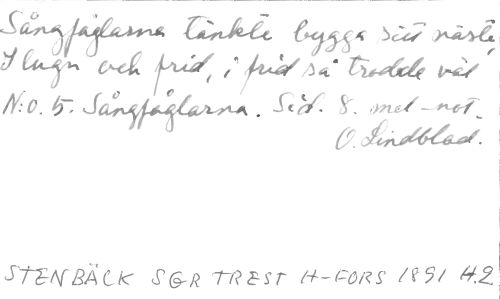 Sångfåglarna tänkte bygga sitt näste,
I lugn och frid, i frid så trodde väl
N:o. 5. Sångfåglarna. Sid. 8. med not.
O. Lindblad.
STENBÄCK SGR TREST H-FORS 1891 H.2